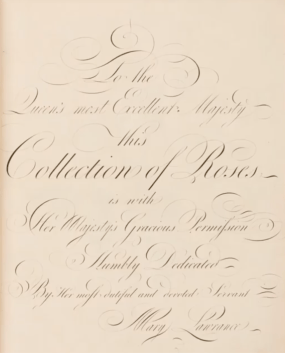 To the
Queen's most Excellent Majesty
this
Collection of Roses
is with
Her Majesty's Gracious Permiſsion
Humbly Dedicated
By Her moſt dutiful and devoted Servant
Mary Lawrance